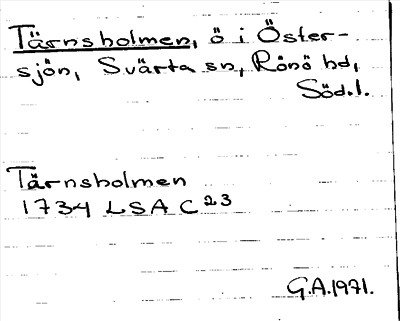 Tärnsholmen, ö i Öster-
sjön, Svärta sn, Rönö hd,
Söd.l.
Tärnsholmen
1734 LSA C23
G.A.1971.